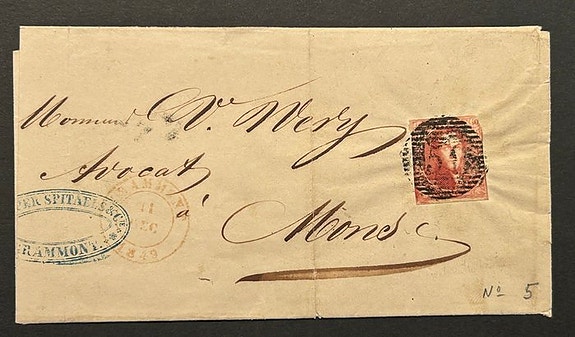 Monsieur V. Wery
Avocat
à
Mons
SPITAELS & Cie
GRAMMONT.
GRAMM
11
DEC
1849
No 5